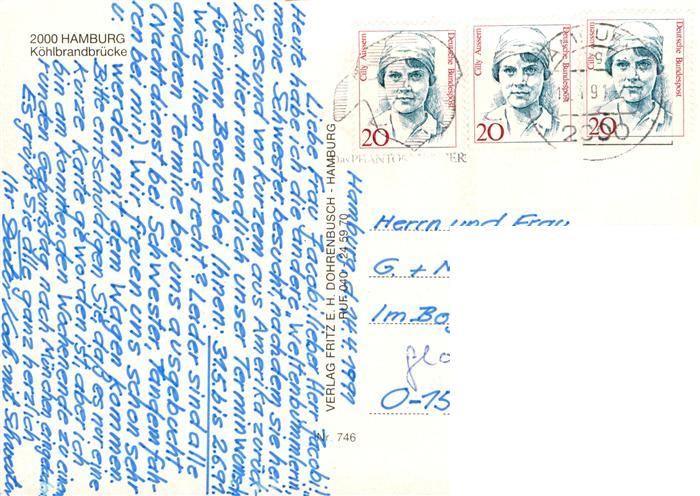 2000 HAMBURG
Köhlbrandbrücke
Cilly Aussem
Deutsche Bundespost
20
Cilly Aussem
Deutsche Bundespost
20
Cilly Aussem
Deutsche Bundespost
20
2000
VERLAG FRITZ E. H. DOHRENBUSCH - HAMBURG
RUF 040 / 24 59 70
Nr. 746
Hamburg, d. 1991
Liebe Frau Jacob, lieber Herr Jacob!
Heute habe ich die "andere" Weitenhuhnern,
meine Schwester, besucht, nachdem sie heil
u. gesund vor kurzem aus Amerika zurück-
kam. Hier nun endlich unser Terminwunsch
für einen Besuch bei Ihnen: 31.5. bis 2.6.91.
Wäre Ihnen das recht? Leider sind alle
anderen Termine bei uns ausgebucht
(Nachtdienst bei Schwester, Tandem fah-
ren bei mir). Wir freuen uns schon sehr
u. werden mit dem Wagen kommen.
Bitte entschuldigen Sie, daß es nur eine
kurze Karte geworden ist, aber ich
bin am kommenden Wochenende zu einem
runden Geburtstag nach München eingeladen
Es grüßt Sie alle ganz herzlich
Ihr Koch mit Schwester
Herrn und Frau
G. +
Im
O-15